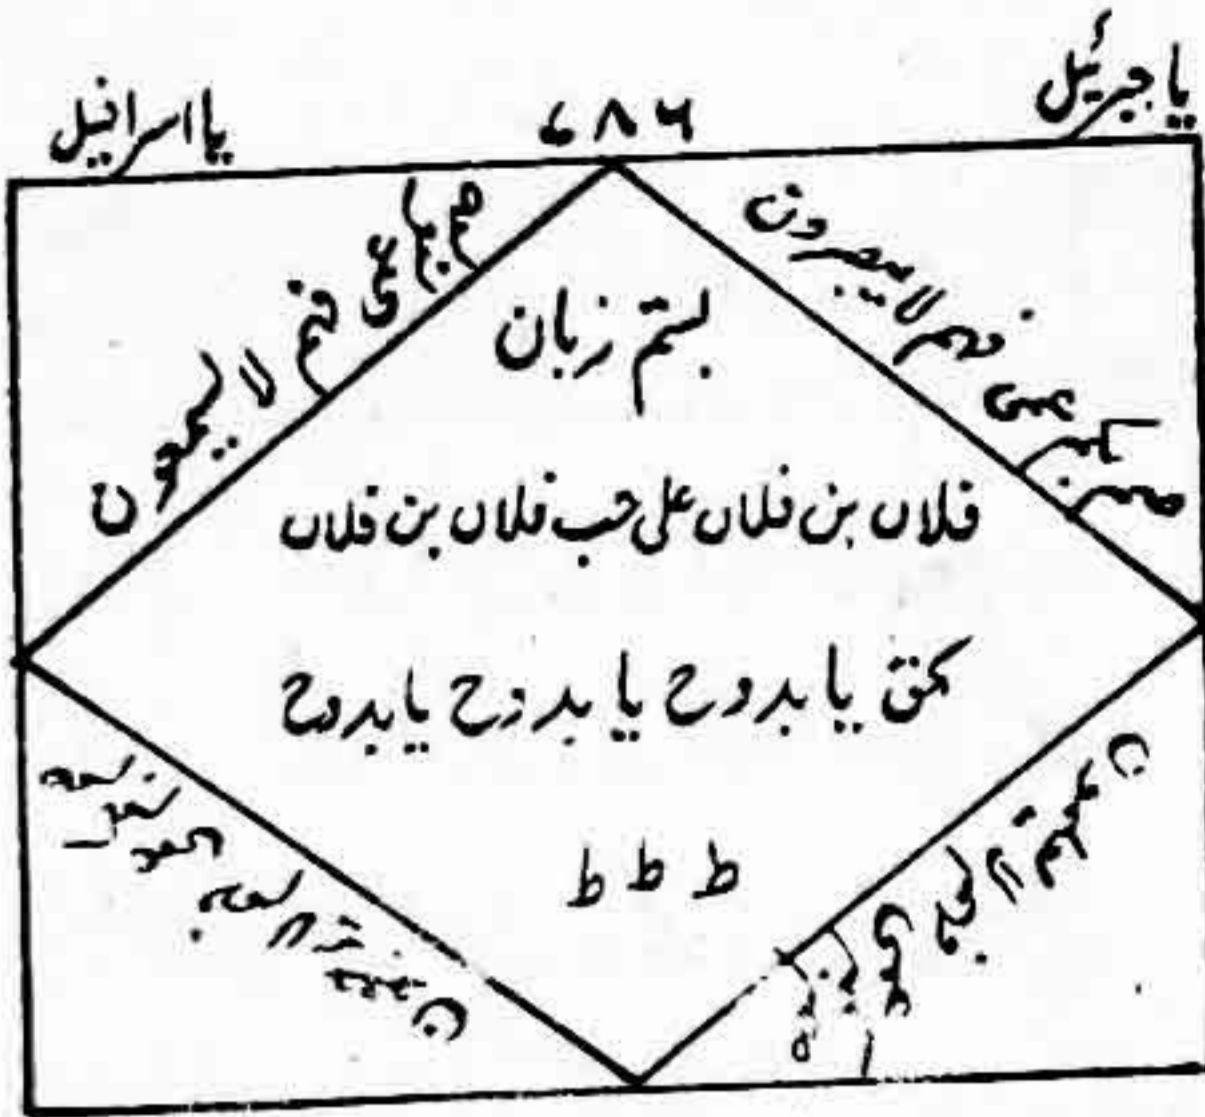 یا جبرئیل
۷۸۶
یا اسرافیل
صم بکم عمی فہم لا یبصرون
صم بکم عمی فہم لا یسمعون
بستم زبان
فلاں بن فلاں علی حب فلاں بن فلاں
بحق یا بدوح یا بدوح یا بدوح
ط ط ط
صم بکم عمی فہم لا